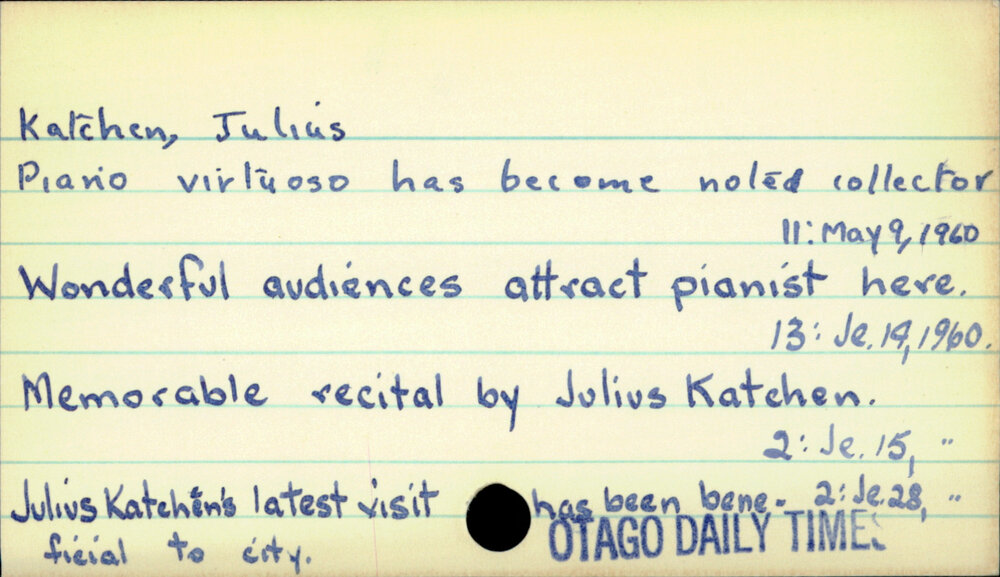 Katchen, Julius
Piano virtuoso has become noted collector
11: May 9, 1960
Wonderful audiences attract pianist here.
13: Je. 14, 1960.
Memorable recital by Julius Katchen.
2: Je. 15, "
Julius Katchen's latest visit has been bene- 2: Je. 28, "
ficial to city.
OTAGO DAILY TIMES